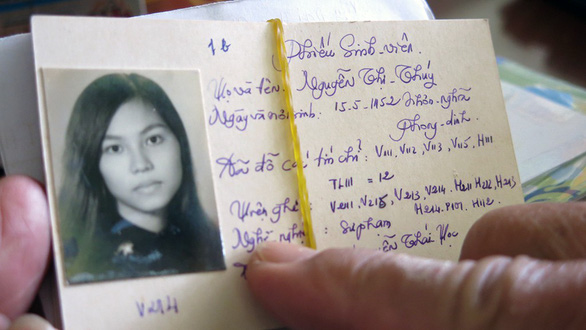 1b
Phiếu Sinh viên.
Họ và tên. Nguyễn Thị Thúy
Ngày và nơi sinh. 15.5-1952 Nhơn-nghĩa
Phong-dinh.
Đã đỗ các tín chỉ: V111, V112, V113, V115, H111
TLIII = 12
: V211, V212, V213, V214. H211 H212, H213
H214. P101. H112
Nghề nghiệp : Sư phạm
Thái Học
V214